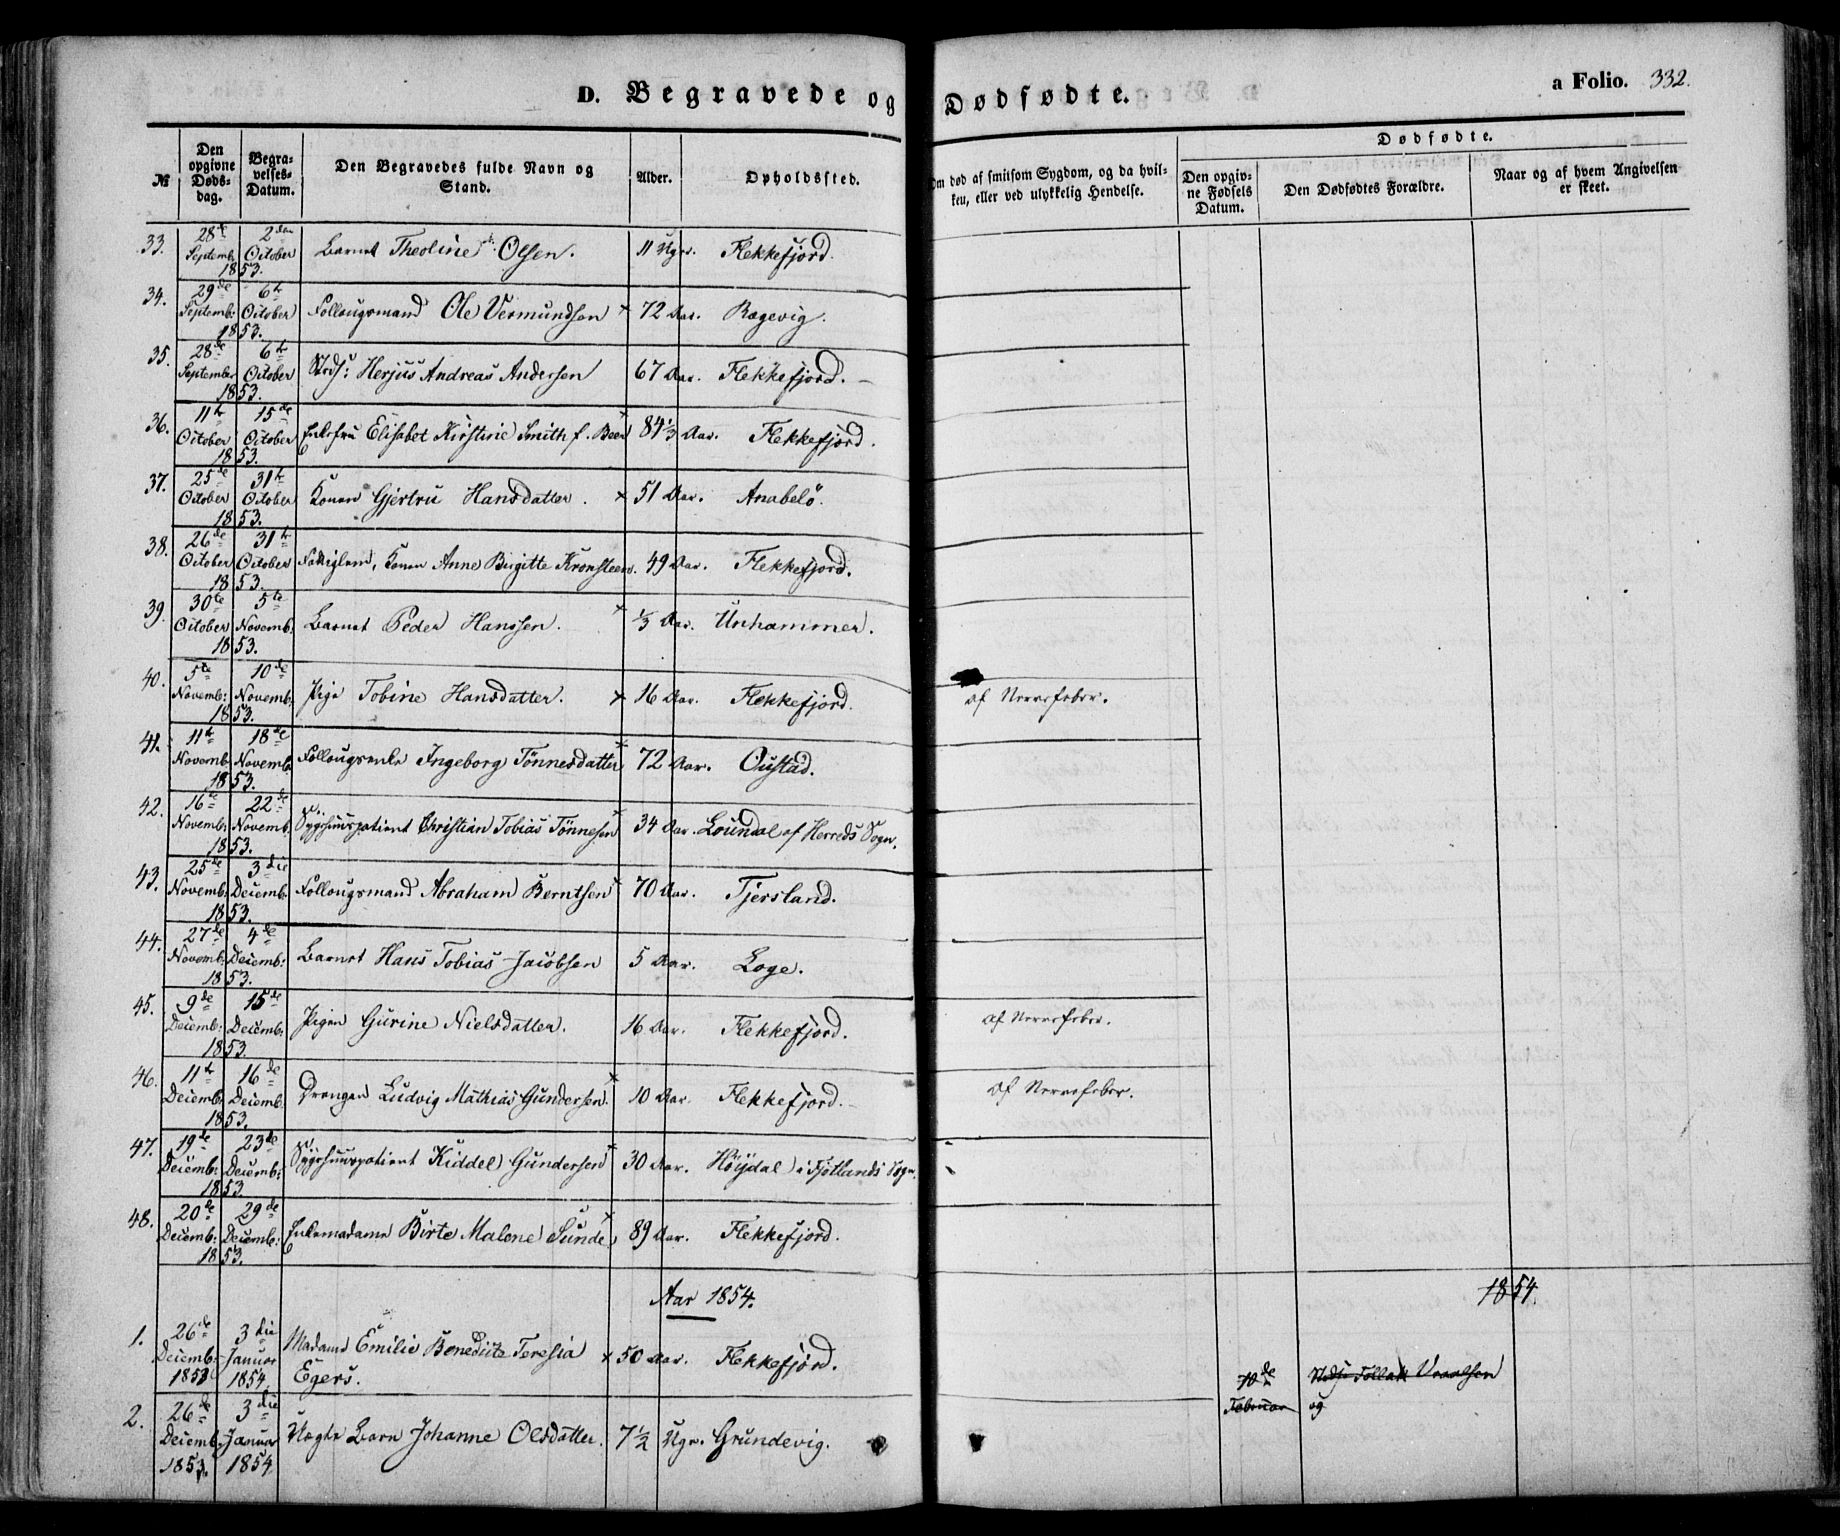 D. Begravede og Dødfødte.
a Folio. 332.
№
Den opgivne Døds-dag.
Begra-velses-Datum.
Den Begravedes fulde Navn og Stand.
Alder.
Opholdssted.
Om død af smitsom Sygdom, og da hvil-ken, eller ved ulykkelig Hendelse.
Dødfødte.
Den opgiv-ne Fødsels Datum.
Den Dødfødtes Forældre.
Naar og af hvem Angivelsen er skeet.
33. 28de Septemb: 2den October 1853. Barnet Theoline Olsen. 11 Ugr. Flekkefjord.
34. 29de Septemb: 6te October 1853. Follougsmand Ole Vermundsen × 72 Aar. Rægevig.
35. 28de September 6te October 1853. Strds: Herjus Andreas Andersen 67 Aar. Flekkefjord.
36. 11te October 15de October 1853. Enkefru Elisabet Kirstine Smith f. Beer × 84 1/3 Aar. Flekkefjord.
37. 25de October 31te October 1853. Konen Gjertru Hansdatter. × 51 Aar. Anabelö.
38. 26de October 31te October 1853. Fattiglem, Konen Anne Birgitte Kronsteen. 49 Aar. Flekkefjord.
39. 30te October 5te Novemb: 1853. Barnet Peder Hanssen. × 1/3 Aar. Unhammer.
40. 5te Novemb: 10de Novemb: 1853. Pige Tobine Hansdatter. × 16 Aar. Flekkefjord. af Nervefeber.
41. 11te Novemb: 18de Novemb: 1853. Follougsenke Ingeborg Tönnesdatter × 72 Aar. Oustad.
42. 16de Novemb: 22de Novemb: 1853. Sygehuuspatient Christian Tobias Tönnesen × 34 Aar. Loundal af Herreds Sogn.
43. 25de Novemb: 3die Decemb: 1853. Follougsmand Abraham Berntsen × 70 Aar. Tjersland.
44. 27de Novemb: 4de Decemb: 1853. Barnet Hans Tobias Jacobsen 5 Aar. Loge.
45. 9de Decemb: 15de Decemb: 1853. Pigen Gurine Nielsdatter. 16 Aar. Flekkefjord. af Nervefeber.
46. 11te Decemb: 16de Decemb: 1853. Drengen Ludvig Mathias Gundersen. × 10 Aar. Flekkefjord. af Nervefeber.
47. 19de Decemb: 23de Decemb: 1853. Sygehuuspatient Kiddel Gundersen × 30 Aar. Höydal i Fjotlands Sogn.
48. 20de Decemb: 29de Decemb: 1853. Enkemadame Birte Malene Sunde × 89 Aar. Flekkefjord.
Aar 1854.
1854.
1. 26de Decemb: 1853 3die Januar 1854. Madame Emilie Benedicte Teresia × 50 Aar. Flekkefjord.
Egers.
10de Februar
og
2. 26de Decemb: 1853. 3die Januar 1854 Uægte Barn Johanne Olsdatter. 7 1/2 Ugr. Grundevig.